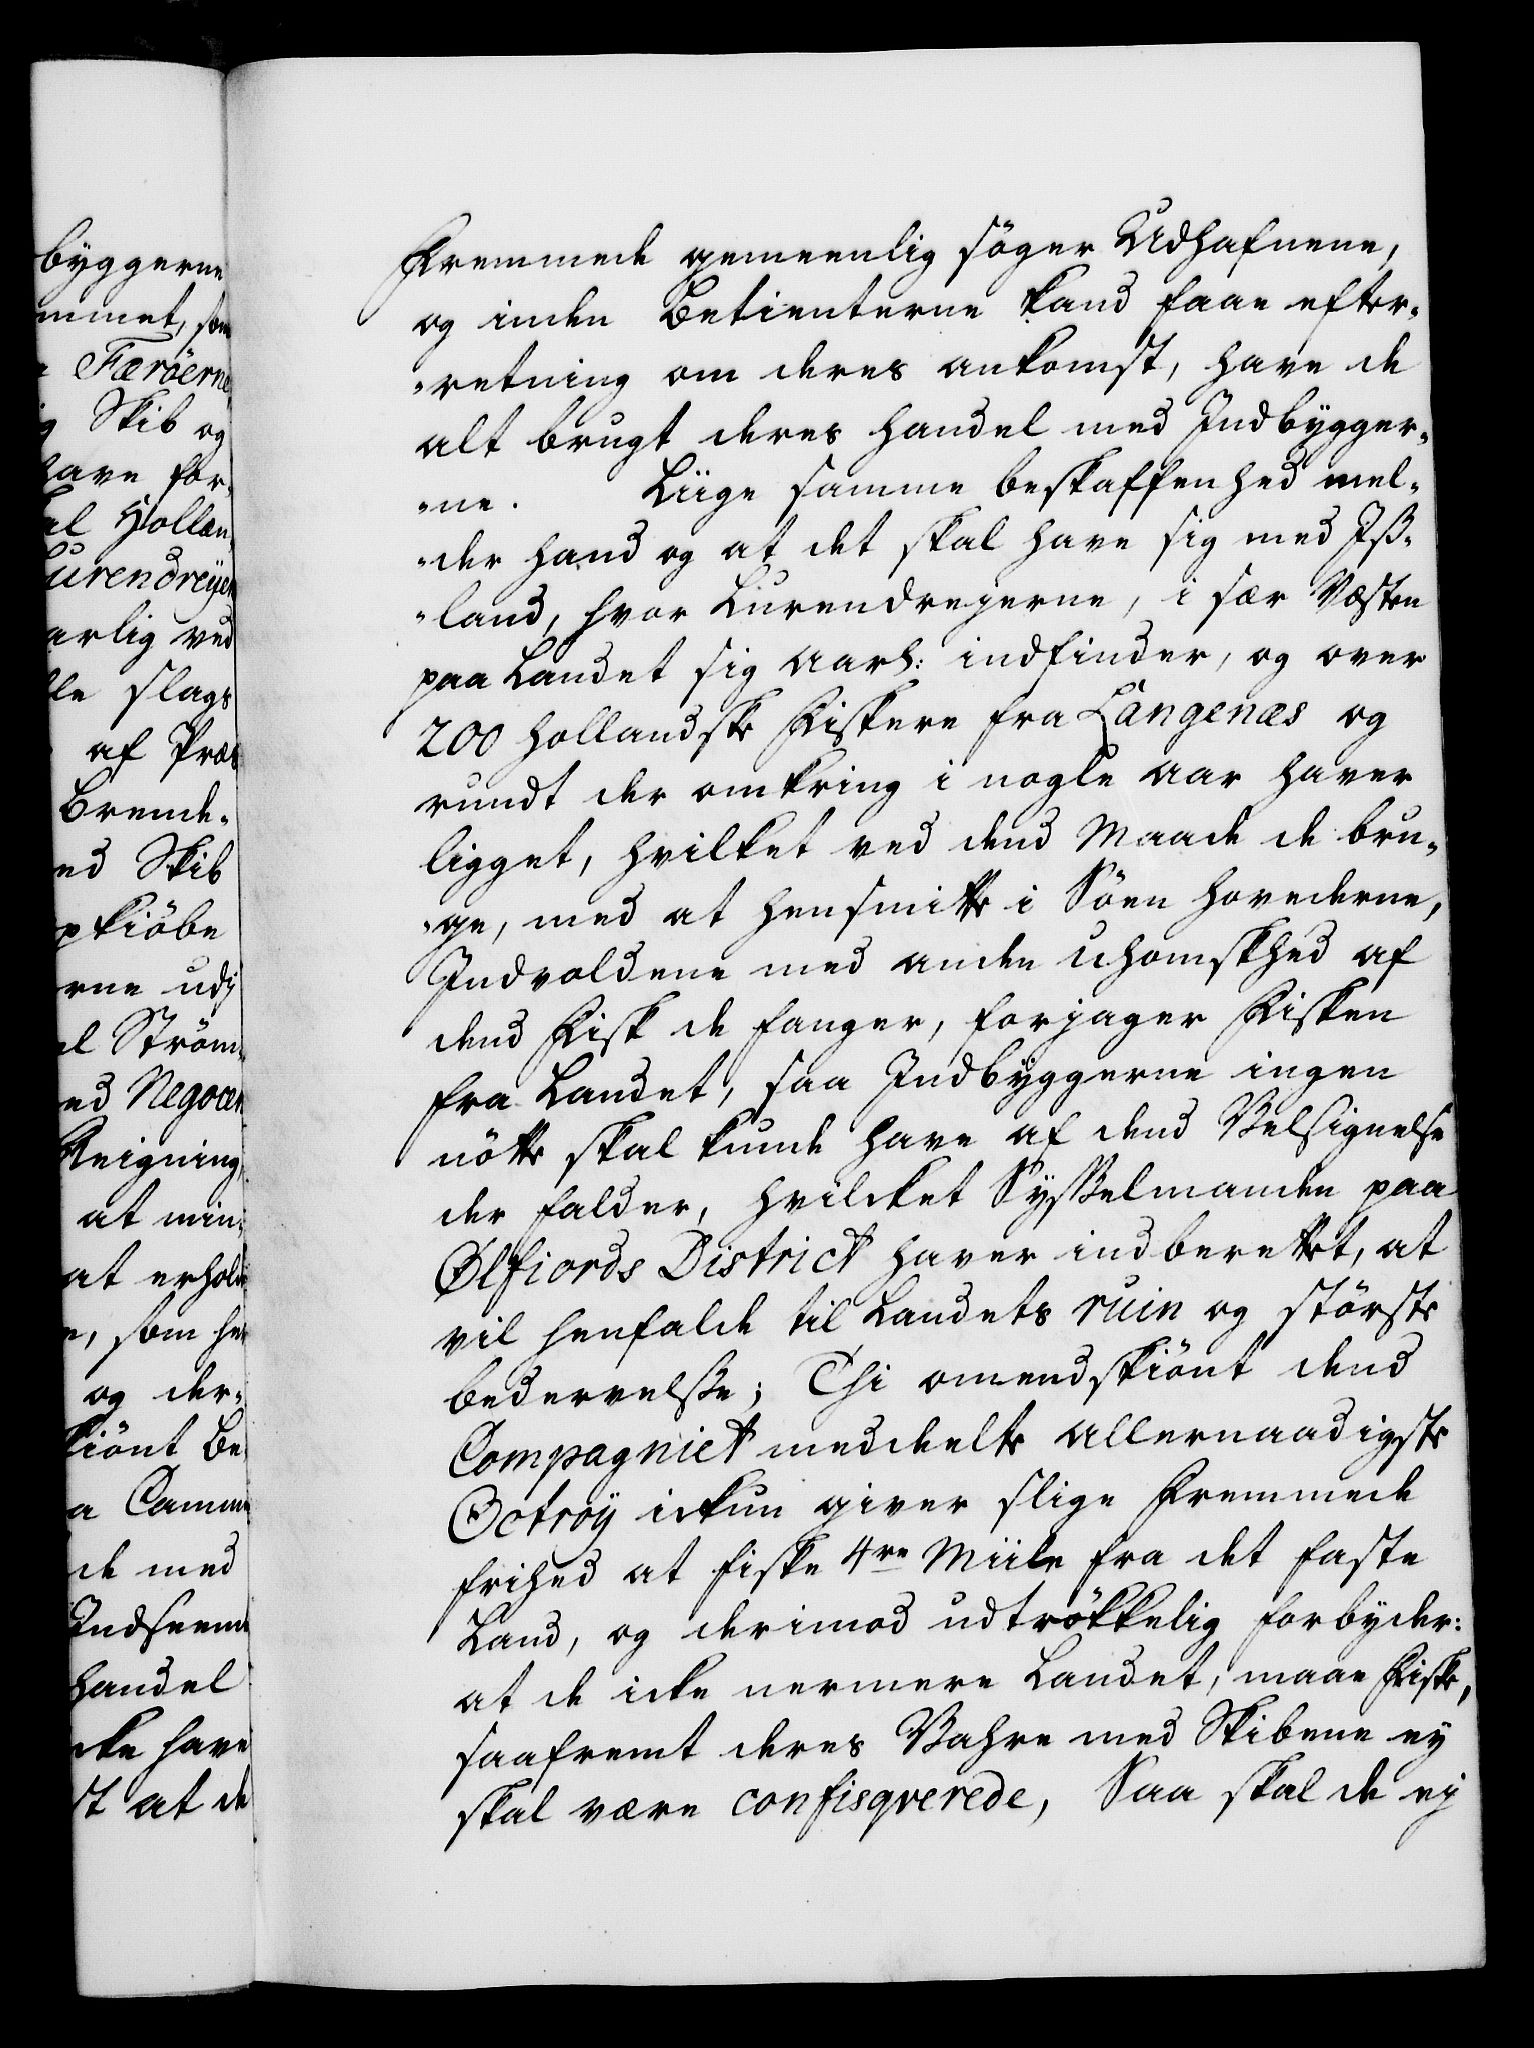 byggerne
mmet, som
Færöerne
Skib og
have for¬
al Hollæn¬
Lurendreyer
arlig ved
lle slags
af Præs
Brende¬
ed Skib
kiöbe
rne udj
el Ström¬
ed Negocen
Reigning
at min¬
at erhol
som he
og der¬
kiönt be
a Camm
de med
Indseen
handel
cke have
st at de
Fremmede gemeenlig söger Udhafnene,
og inden Betienterne kand faae efter¬
¬retning om deres ankomst, have de
alt brugt deres handel med Indbygger¬
¬ne. Liige samme beskaffenhed mel¬
¬der hand og at det skal have sig med Iß¬
¬land, hvor Lurendrejerne, i sær Væsten
paa Landet sig aarl: indfinder, og over
200 hollandske Fiskere fra Langenæs og
rundt der omkring i nogle aar haver
ligget, hvilket ved dend Maade de bru¬
¬ge, med at hensmitte i Söen hovederne,
Indvoldene med anden uhomskhed af
dend Fisk de fanger, forjager Fisken
fra Landet, saa Indbÿggerne ingen
nötte skal kunde have af dend Velsignelse
der falder, hvilcket Sysselmanden paa
Ølfiords District haver indberettet, at
vil henfalde til Landets ruin og störste
bedervelße; Thi omendskiönt dend
Compagniet meddeelte allernaadigste
Octroÿ ickun giver slige Fremmede
frihed at fiske 4re Miile fra det faste
Land, og derimod udtrökkelig forbyder:
at de icke nermere Landet, maae Fiske,
saafremt deres Vahre med Skibene ey
skal være confisqverede, Saa skal de ej